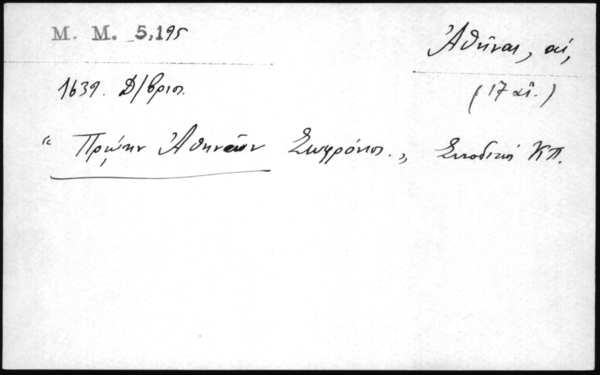 M. M. 5,195
Ἀθῆναι, αἱ,
1639. Δ/βριος.
(17 αἰ.)
“ Πρώην Ἀθηνῶν Σωφρόνιος.„ Συνοδικὸ ΚΠ.